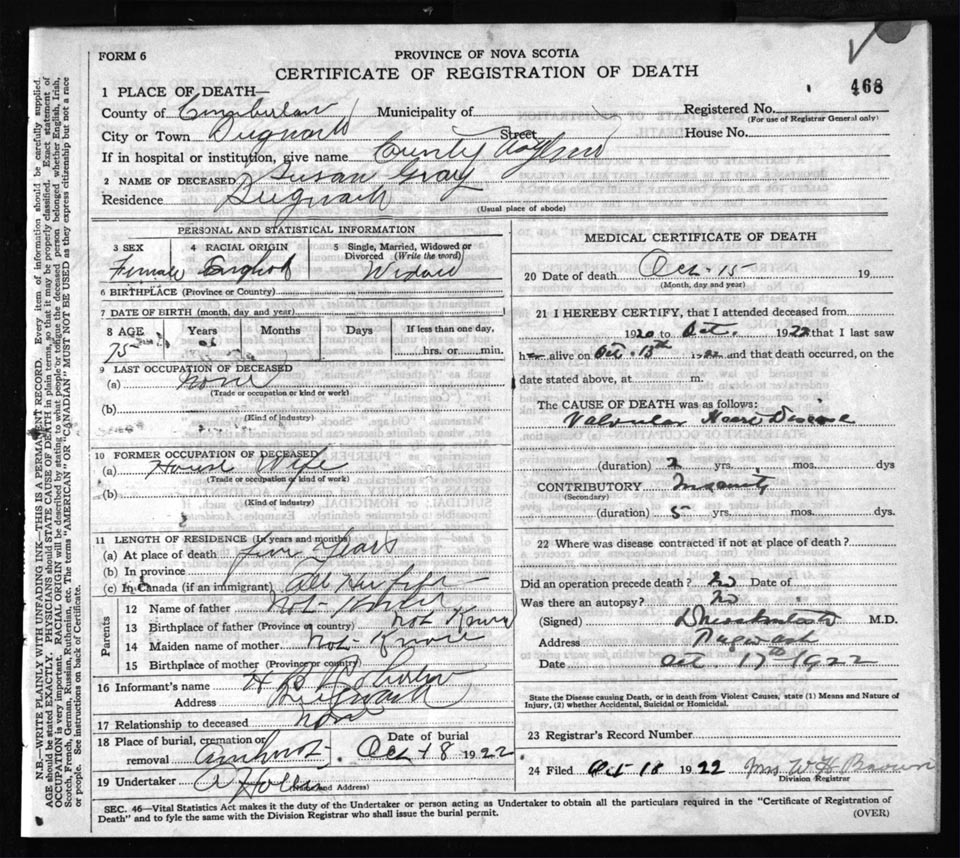 FORM 6
PROVINCE OF NOVA SCOTIA
CERTIFICATE OF REGISTRATION OF DEATH
468
1 PLACE OF DEATH—
County of Cumberland Municipality of Registered No.
(For use of Registrar General only)
City or Town Pugwash Street House No.
If in hospital or institution, give name County Asylum
2 NAME OF DECEASED Susan Gray
Residence Pugwash
(Usual place of abode)
PERSONAL AND STATISTICAL INFORMATION
3 SEX 4 RACIAL ORIGIN 5 Single, Married, Widowed or Divorced (Write the word)
Female English Widow
6 BIRTHPLACE (Province or Country)
7 DATE OF BIRTH (month, day and year)
8 AGE Years Months Days If less than one day,
75 hrs. or min.
9 LAST OCCUPATION OF DECEASED
(a) None
(Trade or occupation or kind or work)
(b)
(Kind of industry)
10 FORMER OCCUPATION OF DECEASED
(a) House Wife
(Trade or occupation or kind of work)
(b)
(Kind of industry)
11 LENGTH OF RESIDENCE (In years and months)
(a) At place of death five years
(b) In province
(c) In Canada (if an immigrant) all her life
Parents
12 Name of father Not Known
13 Birthplace of father (Province or country) Not Known
14 Maiden name of mother Not Known
15 Birthplace of mother (Province or country)
16 Informant's name H B
Address Pugwash
17 Relationship to deceased None
18 Place of burial, cremation or removal Amherst Date of burial Oct 18 1922
19 Undertaker A (Name and Address)
MEDICAL CERTIFICATE OF DEATH
20 Date of death Oct. 15 19
(Month, day and year)
21 I HEREBY CERTIFY, that I attended deceased from
1920 to Oct. 1922 that I last saw
h alive on Oct. 13th 1922 and that death occurred, on the
date stated above, at m.
The CAUSE OF DEATH was as follows:
Valvular Heart Disease
(duration) 2 yrs. mos. dys
CONTRIBUTORY Insanity
(Secondary)
(duration) 5 yrs. mos. dys.
22 Where was disease contracted if not at place of death?
Did an operation precede death? No Date of
Was there an autopsy? No
(Signed) M.D.
Address Pugwash
Date Oct. 17th 1922
State the Disease causing Death, or in death from Violent Causes, state (1) Means and Nature of
Injury, (2) whether Accidental, Suicidal or Homicidal.
23 Registrar's Record Number
24 Filed Oct 18 1922 Mrs W H Brown
Division Registrar
SEC. 46—Vital Statistics Act makes it the duty of the Undertaker or person acting as Undertaker to obtain all the particulars required in the "Certificate of Registration of
Death" and to fyle the same with the Division Registrar who shall issue the burial permit.
(OVER)
N.B.—WRITE PLAINLY WITH UNFADING INK—THIS IS A PERMANENT RECORD. Every item of information should be carefully supplied.
AGE should be stated EXACTLY. PHYSICIANS should STATE CAUSE OF DEATH in plain terms, so that it may be properly classified. Exact statement of
OCCUPATION is very important. RACIAL ORIGIN will be described by stating to what people or tongue the deceased person belonged whether English, Irish,
Scotch, French, German, Russian, Ruthenian, etc. The terms "AMERICAN" OR "CANADIAN" MUST NOT BE USED as they express citizenship but not a race
or people. See instructions on back of Certificate.